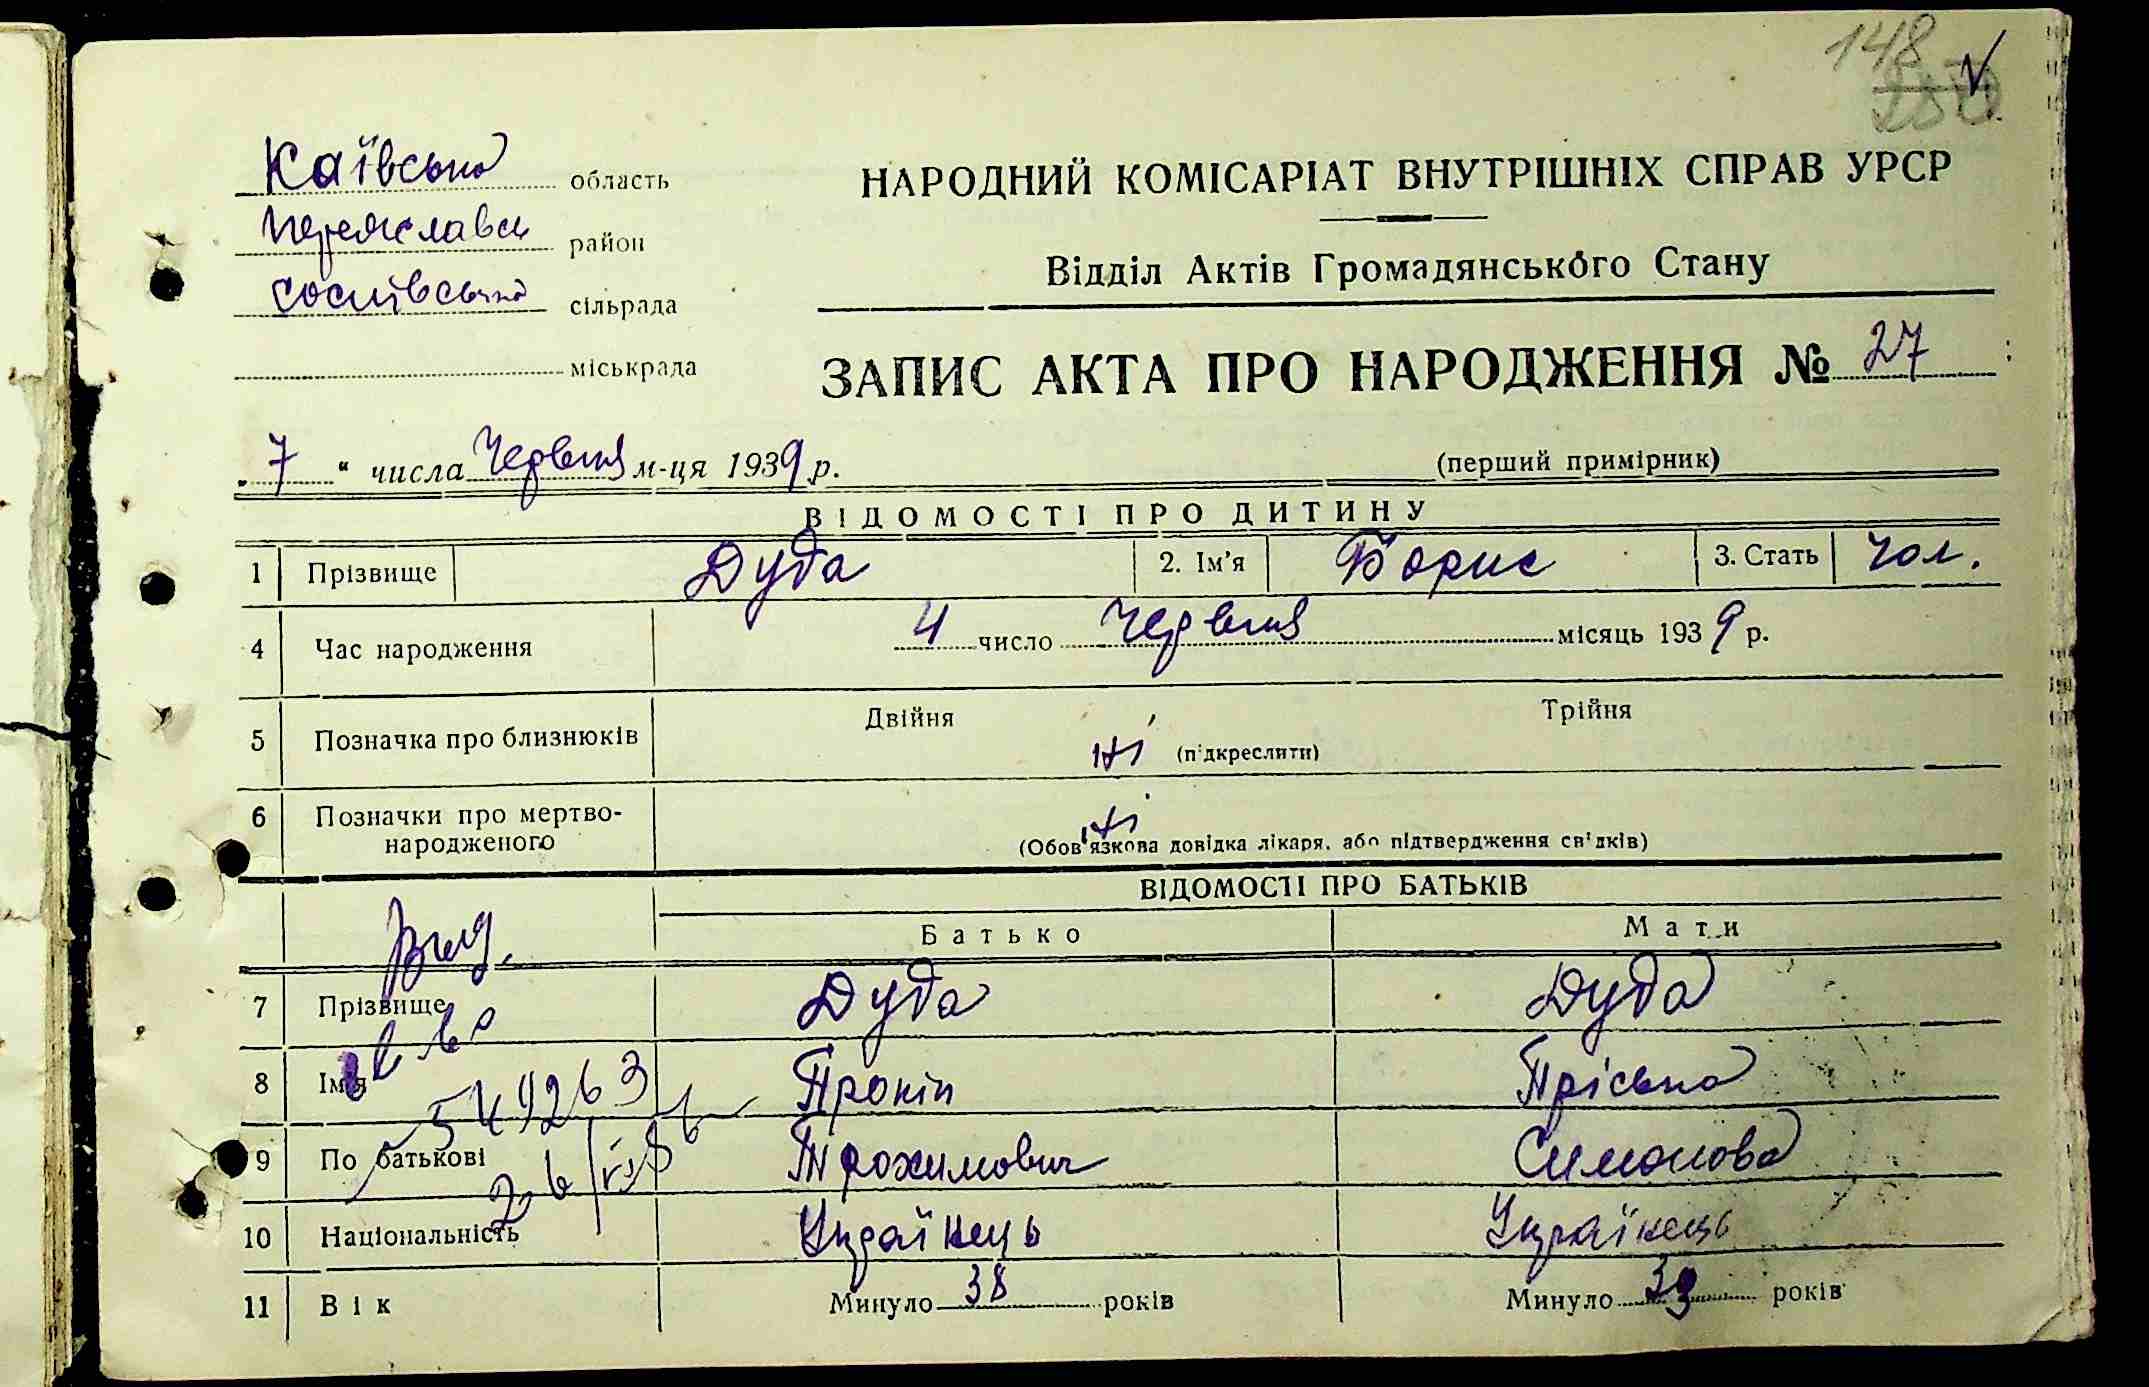 148
Київська область
Переяславськ район
сільрада
міськрада
НАРОДНИЙ КОМІСАРІАТ ВНУТРІШНІХ СПРАВ УРСР
Відділ Актів Громадянського Стану
ЗАПИС АКТА ПРО НАРОДЖЕННЯ № 27
„ 7 “ числа Червня м-ця 1939 р.
(перший примірник)
ВІДОМОСТІ ПРО ДИТИНУ
1 Прізвище Дуда 2. Ім'я Борис 3. Стать чол.
4 Час народження 4 число Червня місяць 1939 р.
5 Позначка про близнюків Двійня ні (підкреслити) Трійня
6 Позначки про мертво-
народженого ні (Обов'язкова довідка лікаря, або підтвердження свідків)
ВІДОМОСТІ ПРО БАТЬКІВ
Вид.
Батько Мати
7 Прізвище Дуда Дуда
8 Ім'я Прокіп Пріська
549263
9 По батькові Трохимович Симонова
10 Національність Українець Українець
11 Вік Минуло 38 років Минуло 39 років